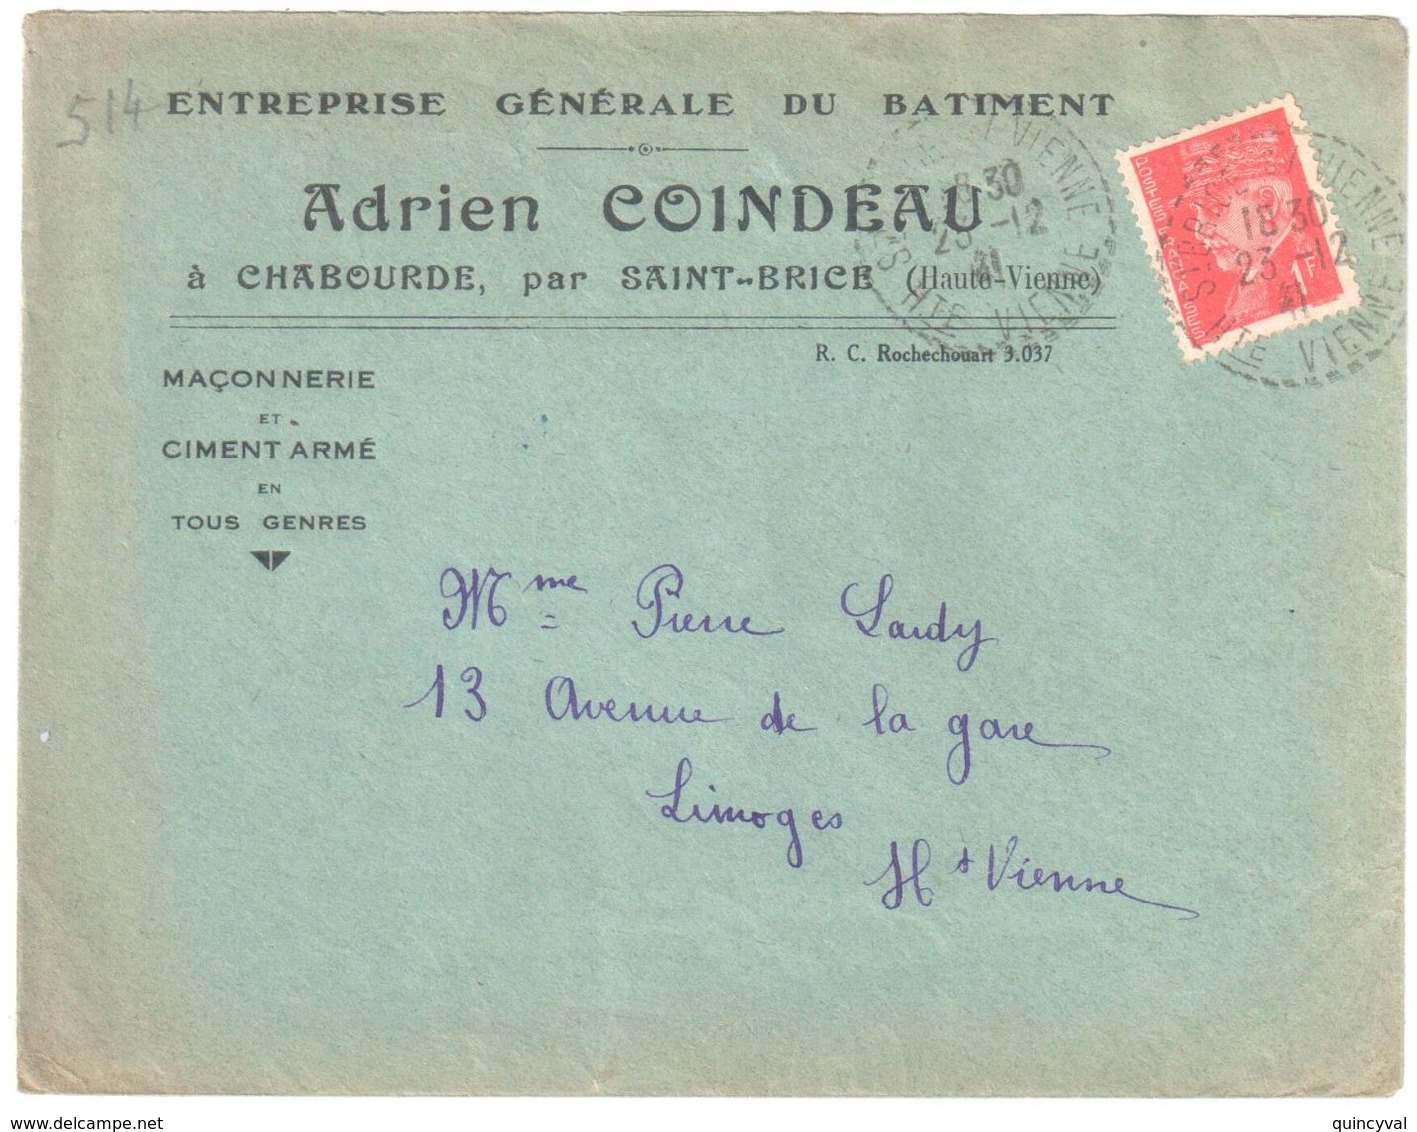 514
ENTREPRISE GÉNÉRALE DU BATIMENT
Adrien COINDEAU
à CHABOURDE, par SAINT-BRICE (Haute-Vienne)
R. C. Rochechouart 3.037
MAÇONNERIE
ET
CIMENT ARMÉ
EN
TOUS GENRES
VIENNE
30
23 -12
41
HTE VIENNE
POSTES FRANÇAISES
1F
ST BRICE S/ VIENNE
18 30
23 -12
41
HTE VIENNE
Mme Pierre Lardy
13 Avenue de la gare
Limoges
Hte Vienne
www.delcampe.net
quincyval